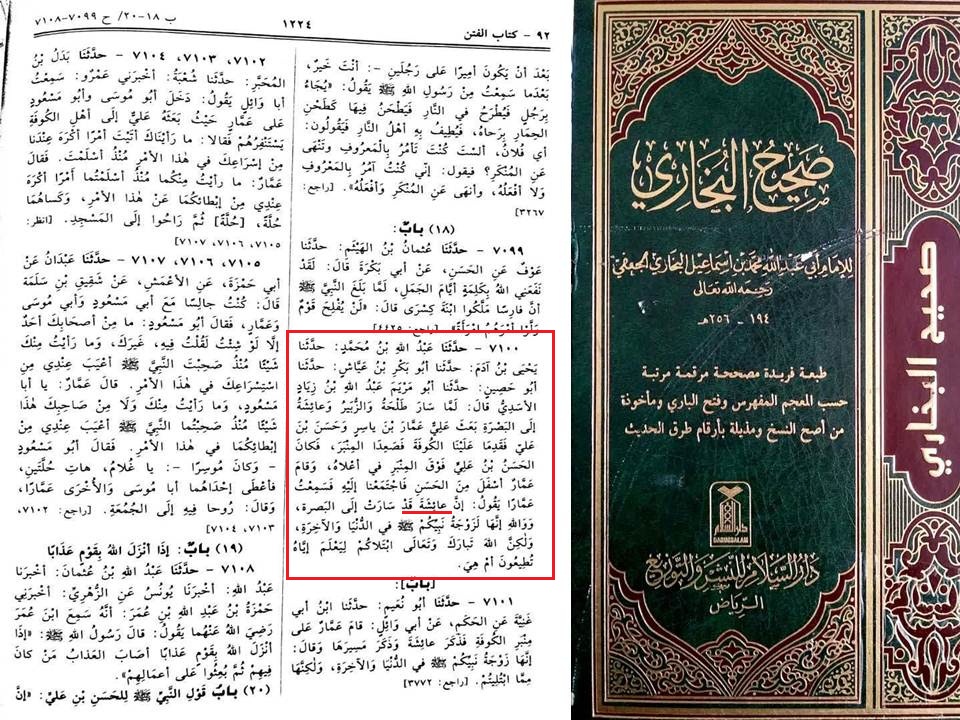 ٩٢ - كتاب الفتن
١٢٢٤
ب ١٨-٢٠/ ح ٧٠٩٩-٧١٠٨
بَعْدَ أَنْ يَكُونَ أَمِيرًا عَلَى رَجُلَيْنِ -: أَنْتَ خَيْرٌ،
بَعْدَما سَمِعْتُ مِنْ رَسُولِ اللهِ ﷺ يَقُولُ: «يُجَاءُ
بِرَجُلٍ فَيُطْرَحُ في النَّارِ فَيَطْحَنُ فِيهَا كَطَحْنِ
الحِمَارِ بِرَحَاهُ، فَيُطِيفُ بِهِ أَهْلُ النَّارِ فَيَقُولُونَ:
أي فُلَانُ، أَلسْتَ كُنْتَ تَأْمُرُ بِالْمَعرُوفِ وَتَنْهَى
عَنِ المُنْكَرِ؟ فيقول: إنِّي كُنْتُ آمُرُ بِالْمَعْرُوفِ
وَلَا أَفْعَلُهُ، وأَنهَى عَنِ المُنْكَرِ وَأَفْعَلُهُ». [راجع:
٣٢٦٧]
(١٨) بابٌ:
٧٠٩٩ - حدَّثَنَا عُثمانُ بْنُ الهَيْثَمِ: حدَّثَنَا
عَوْفٌ عَنِ الحَسَنِ، عَنْ أَبي بَكْرَةَ قَالَ: لَقَدْ
نَفَعَنِي اللهُ بِكَلِمَةٍ أَيَّامَ الجَمَلِ، لَمَّا بَلَغَ النَّبِيَّ ﷺ
أَنَّ فَارِسًا مَلَّكُوا ابْنَةَ كِسْرَى قال: «لَنْ يُفْلِحَ قَوْمٌ
وَلَّوْا أَمْرَهُمُ امْرَأَةً». [راجع: ٤٤٢٥]
٧١٠٠ - حدَّثَنَا عَبْدُ اللهِ بْنُ مُحَمَّدٍ: حدَّثَنَا
يَحْيَى بْنُ آدَمَ: حدَّثَنا أَبُو بَكْرِ بْنُ عَيَّاشٍ: حدَّثَنَا
أبُو حَصِينٍ: حدَّثَنا أَبُو مَرْيَمَ عَبْدُ اللهِ بْنُ زِيَادٍ
الأَسَدِيُّ قَالَ: لَمَّا سَارَ طَلْحَةُ وَالزُّبَيْرُ وَعَائِشَةُ
إِلَى البَصْرَةِ بَعَثَ عَلِيٌّ عَمَّارَ بْنَ يَاسِرٍ وَحَسَنَ بْنَ
عَلِيٍّ فَقَدِمَا عَلَيْنَا الكُوفَةَ فَصَعِدَا المِنْبَرَ، فَكَانَ
الحَسَنُ بْنُ عَلِيٍّ فَوْقَ المِنْبَرِ في أَعْلَاهُ، وَقَامَ
عَمَّارٌ أَسْفَلَ مِنَ الحَسَنِ فَاجْتَمَعْنا إلَيْهِ فَسَمِعْتُ
عَمَّارًا يَقُولُ: إنَّ عائِشَةَ قَدْ سَارَتْ إلَى البَصرة،
وَوَاللهِ إنَّهَا لَزَوْجَةُ نَبِيِّكُمْ ﷺ في الدُّنْيَا وَالآخِرَةِ،
وَلٰكِنَّ اللهَ تَبَارَكَ وَتَعَالَى ابْتَلاكُمْ لِيَعْلَمَ إيَّاهُ
تُطِيعُونَ أَمْ هِيَ.
[بابٌ]:
٧١٠١ - حدَّثَنَا أَبُو نُعَيْمٍ: حدَّثَنَا ابْنُ أَبي
غَنِيَّةَ عَنِ الحَكَمِ، عَنْ أَبي وَائِلٍ: قام عَمَّارٌ عَلَى
مِنْبَرِ الكُوفَةِ فَذَكَرَ عائِشَةَ وَذَكَرَ مَسِيرَهَا وَقَالَ:
إنَّهَا زَوْجَةُ نَبِيِّكُمْ ﷺ في الدُّنْيَا وَالآخِرَةِ، وَلٰكِنَّهَا
مِمَّا ابْتُلِيتُمْ. [راجع: ٣٧٧٢]
٧١٠٢، ٧١٠٣، ٧١٠٤ - حدَّثَنَا بَدَلُ بْنُ
المُحَبَّرِ: حدَّثَنا شُعْبَةُ: أَخْبَرَنِي عَمْرٌو: سَمِعْتُ
أَبا وَائِلٍ يَقُولُ: دَخَلَ أَبُو مُوسَى وأَبُو مَسْعُودٍ
عَلَى عَمَّارٍ حَيْثُ بَعَثَهُ عَلِيٌّ إلى أَهْلِ الكُوفَةِ
يَسْتَنْفِرُهُمْ فَقَالا: ما رَأَيْنَاكَ أَتَيْتَ أَمْرًا أَكْرَهَ عِنْدَنا
مِنْ إسْرَاعِكَ في هٰذا الأَمْرِ مُنْذُ أَسْلَمْتَ. فَقَالَ
عَمَّارٌ: ما رأَيْتُ مِنْكُما مُنْذُ أَسْلَمْتُما أَمْرًا أَكْرَهَ
عِنْدِي مِنْ إبْطَائِكُمَا عَنْ هٰذا الأَمْرِ، وَكَساهُمَا
حُلَّةً، [حُلَّةً] ثُمَّ رَاحُوا إلَى المَسْجِدِ. [انظر:
٧١٠٥، ٧١٠٦، ٧١٠٧]
٧١٠٥، ٧١٠٦، ٧١٠٧ - حدَّثَنَا عَبْدَانُ عَنْ
أَبي حَمْزَةَ، عَنِ الأَعْمَشِ، عَنْ شَقِيقِ بْنِ سَلَمَةَ
قَالَ: كُنْتُ جالِسًا مَعَ أَبِي مَسْعُودٍ وَأَبِي مُوسَى
وَعَمَّارٍ، فَقَالَ أَبُو مَسْعُودٍ: ما مِنْ أَصحابِكَ أَحَدٌ
إلَّا لَوْ شِئْتُ لَقُلْتُ فِيهِ، غَيْرَكَ، وَما رَأَيْتُ مِنْكَ
شَيْئًا مُنْذُ صَحِبْتَ النَّبِيَّ ﷺ أَعْيَبَ عِنْدِي مِنِ
اسْتِسْرَاعِكَ في هٰذَا الأَمْرِ. قالَ عَمَّارٌ: يا أَبا
مَسْعُودٍ، وَمَا رَأَيْتُ مِنْكَ وَلَا مِنْ صَاحِبِكَ هٰذَا
شَيْئًا مُنْذُ صَحِبْتُما النَّبِيَّ ﷺ أَعْيَبَ عِنْدِي مِنْ
إبْطَائِكُمَا في هٰذا الأَمْرِ. فَقالَ أَبُو مَسْعُودٍ
- وَكانَ مُوسِرًا -: يا غُلَامُ، هاتِ حُلَّتَيْنِ،
فأعْطَى إحْدَاهُما أَبا مُوسَى وَالأُخْرَى عَمَّارًا،
وَقَالَ: رُوحا فِيهِ إلَى الجُمُعَةِ. [راجع: ٧١٠٢،
٧١٠٣، ٧١٠٤]
(١٩) بابٌ: إذَا أَنْزَلَ اللهُ بِقَوْمٍ عَذَابًا
٧١٠٨ - حدَّثَنَا عَبْدُ اللهِ بْنُ عُثْمَانَ: أَخْبَرَنا
عَبْدُ اللهِ: أَخْبَرَنَا يُونُسُ عَنِ الزُّهْرِيِّ: أَخْبَرَنِي
حَمْزَةُ بْنُ عَبْدِ اللهِ بْنِ عُمَرَ: أَنَّهُ سَمِعَ ابْنَ عُمَرَ
رَضِيَ اللهُ عَنْهُما يَقُولُ: قالَ رَسُولُ اللهِ ﷺ: «إذَا
أَنْزَلَ اللهُ بِقَوْمٍ عَذَابًا أَصَابَ العَذَابُ مَنْ كانَ
فِيهِمْ ثُمَّ بُعِثُوا عَلى أَعمالِهِمْ».
(٢٠) بابُ قَوْلِ النَّبِيِّ ﷺ لِلحَسَنِ بْنِ عَلِيٍّ: «إنَّ
صَحِيحُ البُخَارِي
لِلإِمَامِ أَبِي عَبْدِ اللهِ مُحَمَّدِ بْنِ إِسْمَاعِيلَ البُخَارِيِّ الجُعْفِيِّ
رَحِمَهُ الله تَعَالى
١٩٤ - ٢٥٦هـ
طبعة فريدة مصححة مرقمة مرتبة
حسب المعجم المفهرس وفتح الباري ومأخوذة
من أصح النسخ ومذيلة بأرقام طرق الحديث
دار السلام
DARUSSALAM
دَارُ السَّلامِ لِلنَّشْرِ وَالتَّوْزِيعِ
الرِّيَاض
صحيح البخاري